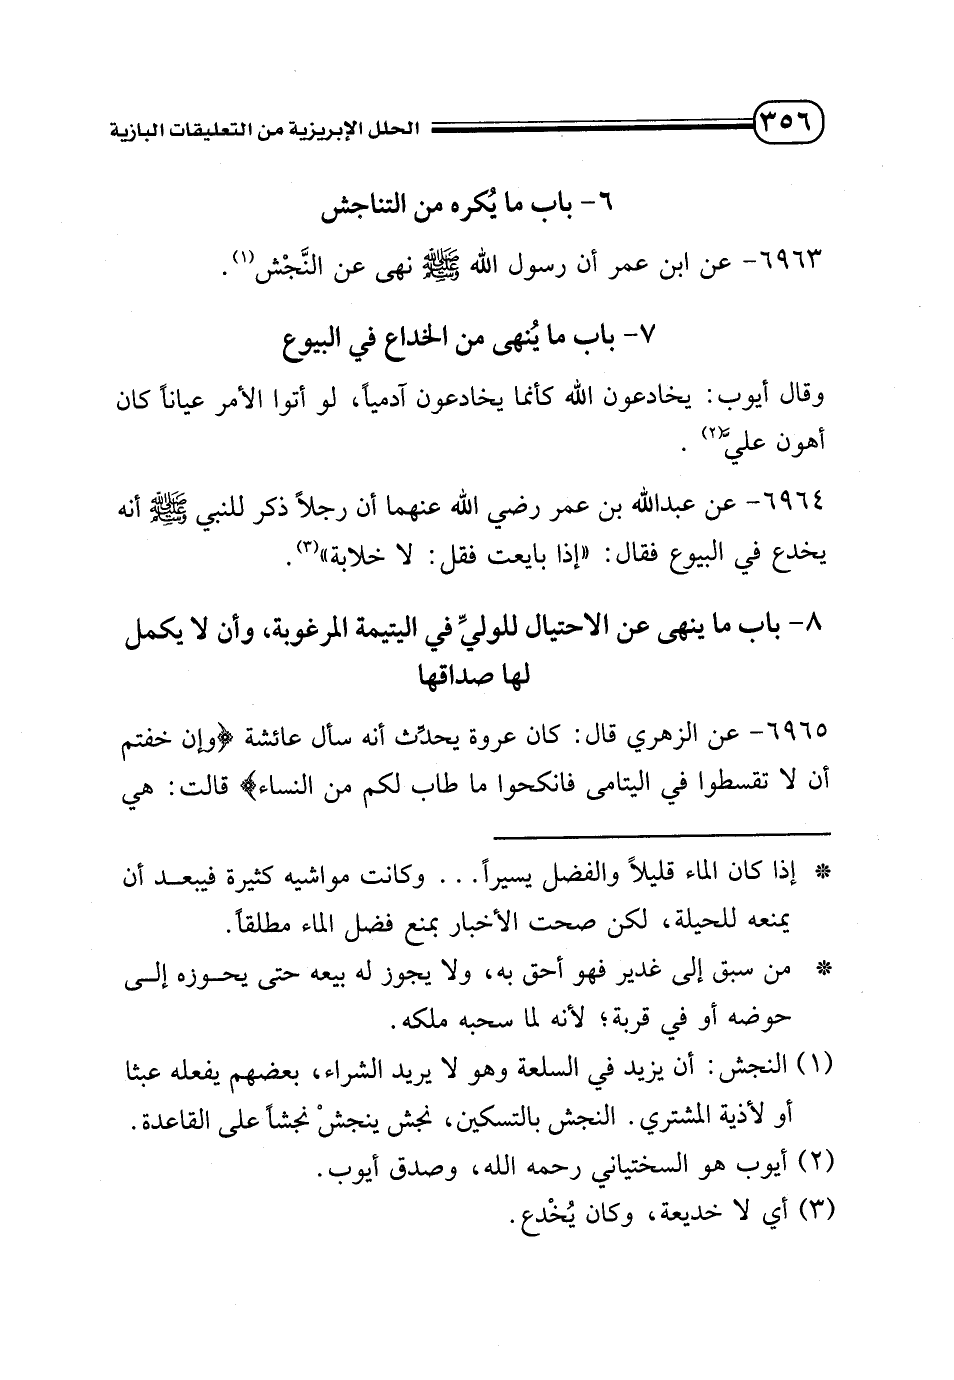 ٣٥٦ الحلل الإبريزية من التعليقات البازية
٦- باب ما يُكره من التناجش
٦٩٦٣- عن ابن عمر أن رسول الله ﷺ نهى عن النَّجْش(١).
٧- باب ما يُنهى من الخداع في البيوع
وقال أيوب: يخادعون الله كأنما يخادعون آدمياً، لو أتوا الأمر عياناً كان
أهون عليَّ(٢).
٦٩٦٤- عن عبدالله بن عمر رضي الله عنهما أن رجلاً ذكر للنبي ﷺ أنه
يخدع في البيوع فقال: «إذا بايعت فقل: لا خلابة»(٣).
٨- باب ما ينهى عن الاحتيال للوليِّ في اليتيمة المرغوبة، وأن لا يكمل
لها صداقها
٦٩٦٥- عن الزهري قال: كان عروة يحدِّث أنه سأل عائشة ﴿وإن خفتم
أن لا تقسطوا في اليتامى فانكحوا ما طاب لكم من النساء﴾ قالت: هي
* إذا كان الماء قليلاً والفضل يسيراً... وكانت مواشيه كثيرة فيبعد أن
يمنعه للحيلة، لكن صحت الأخبار بمنع فضل الماء مطلقاً.
* من سبق إلى غدير فهو أحق به، ولا يجوز له بيعه حتى يحوزه إلى
حوضه أو في قربة؛ لأنه لما سحبه ملكه.
(١) النجش: أن يزيد في السلعة وهو لا يريد الشراء، بعضهم يفعله عبثا
أو لأذية المشتري. النجش بالتسكين، نجش ينجشْ نجشاً على القاعدة.
(٢) أيوب هو السختياني رحمه الله، وصدق أيوب.
(٣) أي لا خديعة، وكان يُخْدع.